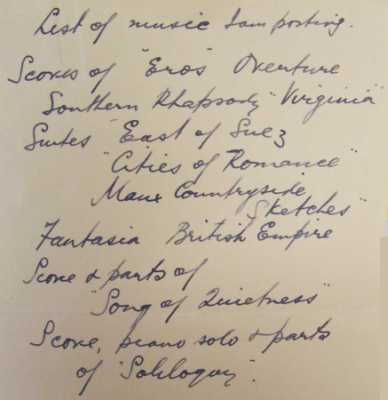 List of music I am posting.
Scores of "Eros" Overture
Southern Rhapsody "Virginia"
Suites "East of Suez
"Cities of Romance"
Manx Countryside
Sketches"
Fantasia British Empire
Score & parts of
"Song of Quietness"
Score, piano solo & parts
of "Soliloquy".